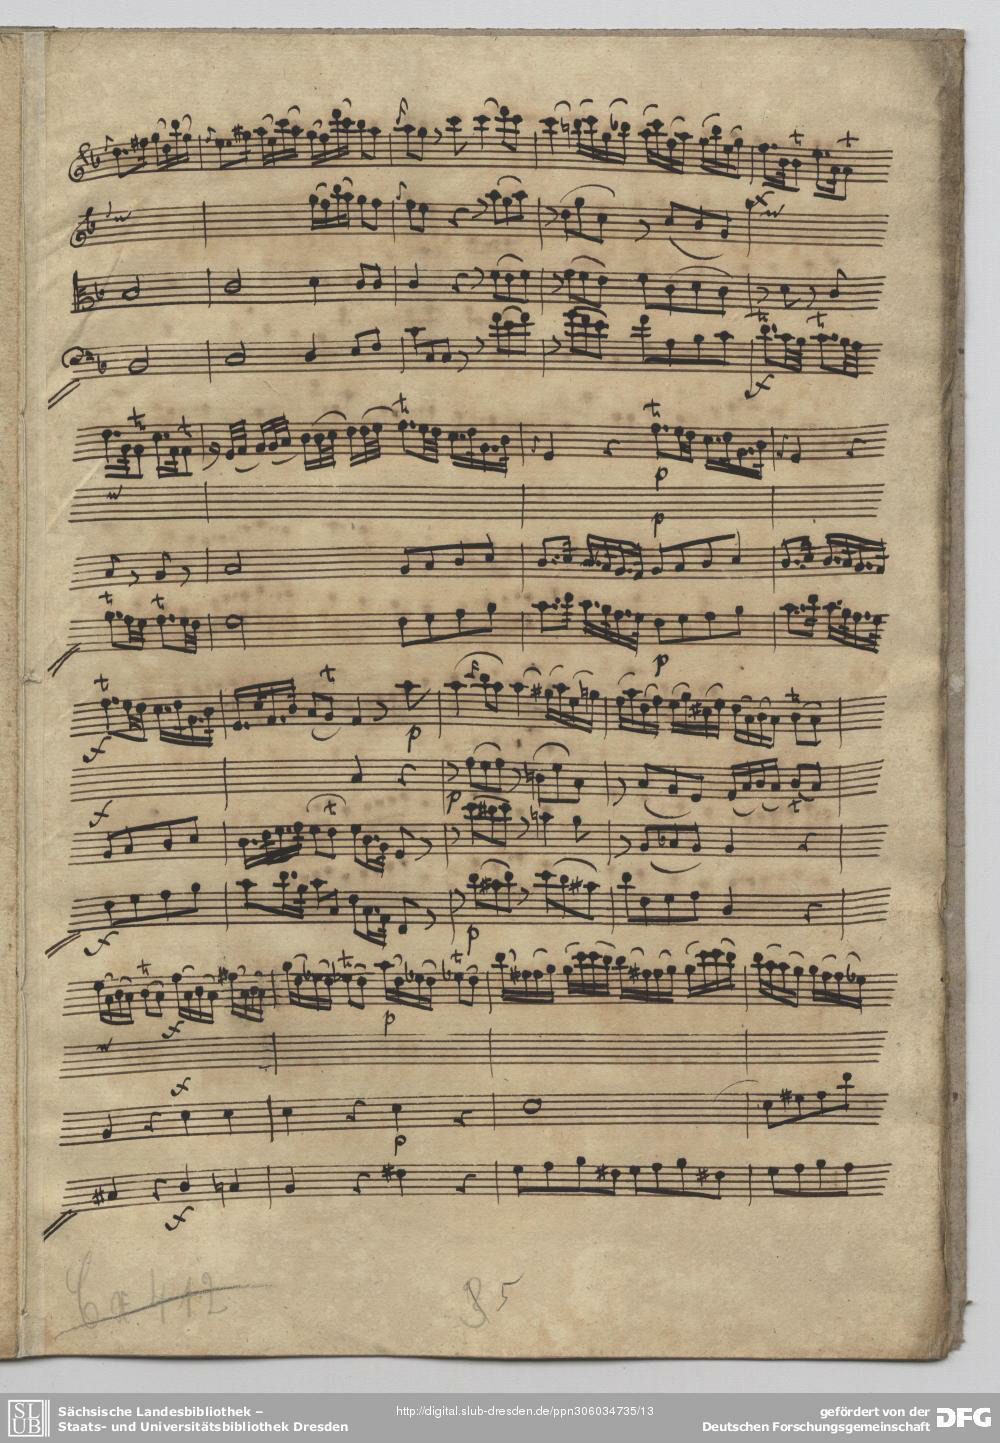 p
p
p
p
p
p
p
p
p
Cx 412
35
SLUB
Sächsische Landesbibliothek –
Staats- und Universitätsbibliothek Dresden
http://digital.slub-dresden.de/ppn306034735/13
gefördert von der
Deutschen Forschungsgemeinschaft
DFG